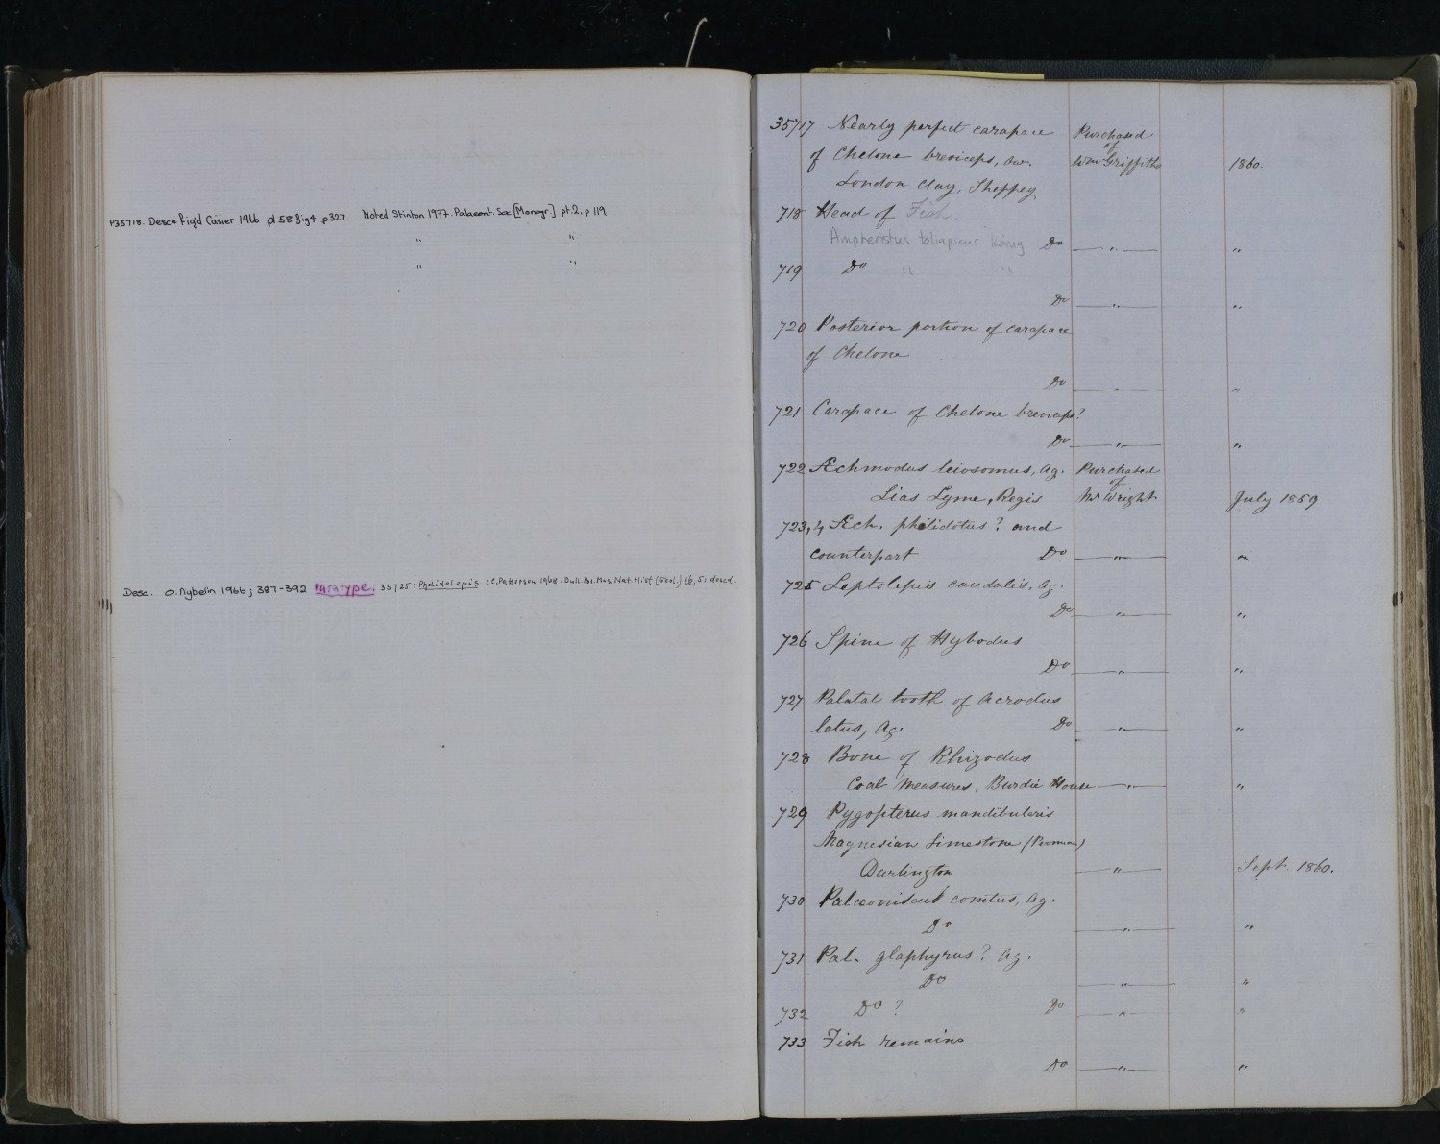 P35718. Desc & Fig'd Casier 1966 pl 58 fig 4 p 327 Noted Stinton 1977. Palaeont. Soc [Monogr.] pt. 2, p 119
" "
" "
Desc. O. Nybelin 1966; 387-392 Paratype. 35725: Pholidolepis : C. Patterson 1968. Bull. Br. Mus. Nat. Hist (Geol.) 16, 5: descd.
35717 Nearly perfect carapace Purchased
of
of Chelone breviceps, Ow. Wm Griffiths 1860.
London Clay, Sheppey.
718 Head of Fish.
Ampheristus toliapicus König Do " "
719 Do " "
Do " "
720 Posterior portion of carapace
of Chelone
Do " "
721 Carapace of Chelone breviceps?
Do " "
722 Æchmodus leiosomus, Ag. Purchased
of
Lias Lyme, Regis Mr Wright July 1859
723,4 Æch. pholidotus? and
counterpart Do " "
725 Leptolepis caudalis, Ag.
Do " "
726 Spine of Hybodus
Do " "
727 Palatal tooth of Acrodus
latus, Ag. Do " "
728 Bone of Rhizodus
Coal Measures, Burdie House " "
729 Pygopterus mandibularis
Magnesian Limestone (Permian)
Darlington " Sept. 1860.
730 Palæoniscus comtus, Ag.
Do " "
731 Pal. glaphyrus? Ag.
Do " "
732 Do ? Do " "
733 Fish remains
Do " "